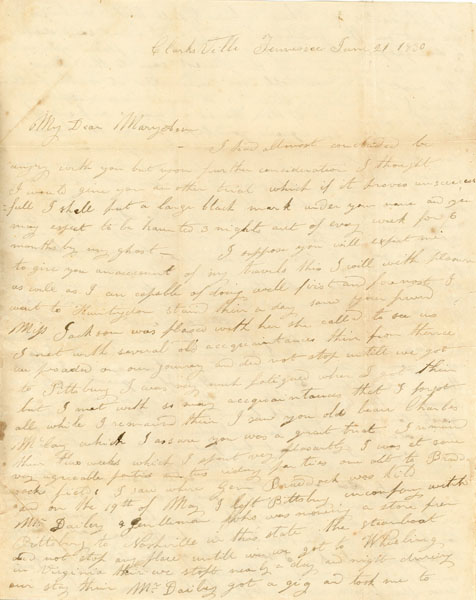 Clarksville Tennessee June 21 1830
My Dear Maryann
I had almost concluded to be
angry with you but upon further consideration I thought
I would give you an other trial which if it proves unsucces
full I shall put a large black mark under your name and you
may expect to be haunted 3 nights out of every week for 6
months by my ghost — I suppose you will expect me
to give you an account of my travels this I will with pleasure
as well as I am capable of doing well first and foremost I
went to Huntingdon staid there a day saw your friend
Miss Jackson was pleased with her she called to see us
I met with several old acquaintances there from thence
we proceeded on our journey and did not stop untill we got
to Pittsburg I was very much fatigued when I got there
but I met with so many acquaintances that I forgot
all while I remained there I saw your old beau Charles
McCay which I assure you was a great treat I remained
there two weeks which I spent very pleasantly I was at some
very agreeable parties and two riding parties one out to Brad
docks field I saw where Genl Braddock was killed
and on the 19th of May I left Pittsburg in company with
Mr Dailey a gentleman who was moving a store from
Pittsburg to Nashville in this state the steamboat
did not stop any place untill we got to Wheeling
in Virginia there we stopt nearly a day and night during
our stay there Mr Dailey got a gig and took me to